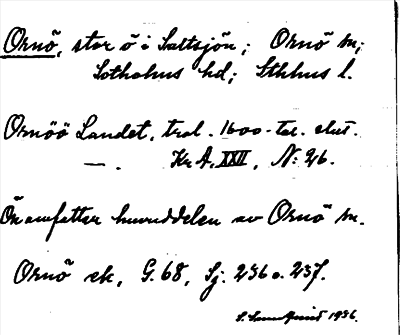 Ornö, stor ö i Saltsjön; Ornö sn;
Sotholms hd; Sthlms l.
Ornöö Landet, trol. 1600-tal. slut.
— . Kr. A. XXII, N: 26.
Ön omfattar huvuddelen av Ornö sn.
Ornö sk, G. 68, Sj. 236 o. 237.
1936.